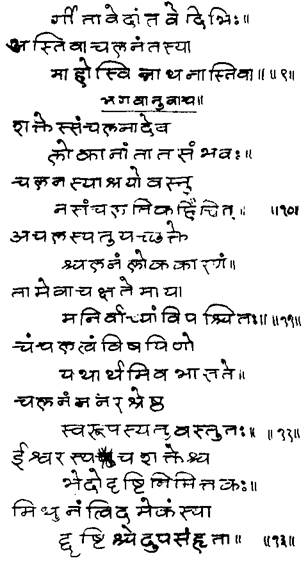 र्गीतावेदांतवेदिभिः॥
अस्तिवाचलनंतस्या
माहोस्विन्नाथनास्तिवा॥॥९॥
भगवानुवाच॥
शक्तेस्संचलनादेव
लोकानांतातसंभवः॥
चलनस्याश्रयोवस्तु
नसंचलतिकिंचित्॥ ॥१०॥
अचलस्यतुयच्छक्ते
श्चलनंलोककारणं॥
तामेवाचक्षतेमाया
मनिर्वाच्यांविपश्चितः॥११॥
चंचलत्वंविषयिणो
यथार्थमिवभासते॥
चलनंननरश्रेष्ठ
स्वरूपस्यतुवस्तुतः॥ ॥१२॥
ईश्वरस्यचशक्तेश्च
भेदोदृष्टिनिमित्तकः॥
मिथुनंत्विदमेकंस्या
द्दृष्टिश्चेदुपसंहृता॥ ॥१३॥